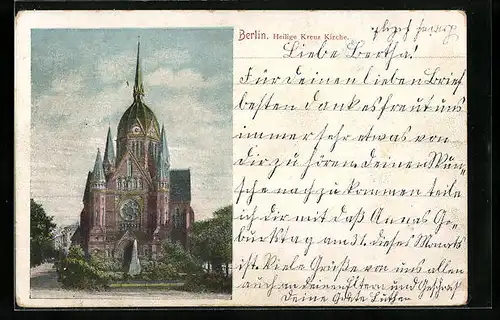 Berlin. Heilige Kreuz Kirche.
Liebe Bertha!
Für deinen lieben Brief
besten dank es freut uns
immer sehr etwas von
dir zu hören. deinen Wun-
sche nachzukommen teile
ich dir mit daß Annas Ge-
burtstag am 31. dieses Monats
ist. Viele Grüße von uns allen
auch an deine Eltern und
Deine